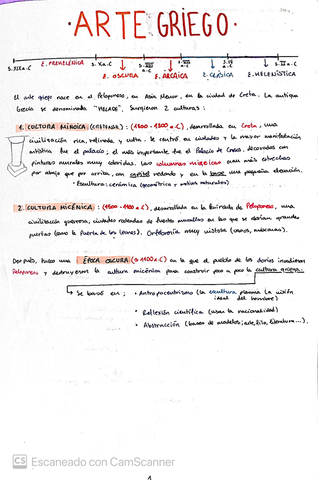 ·ARTE GRIEGO·
S.XIX a.C
E. PREHELÉNICA
S. X a.C
E. OSCURA
S. VIII a.C
E. ARCAICA
E. CLÁSICA
S. IV
E. HELENÍSTICA
a.C
El arte griego nace en el Peloponeso, en Asia Menor, en la ciudad de Creta. La antigua
Grecia se denominaba "HÉLADE". Surgieron 2 culturas:
1. CULTURA MINOICA (CRETENSE): a.C), desarrollada en Creta, una
civilización rica, refinada y culta. Se centró en ciudades y la mayor manifestación
artística fue el palacio; el más importante fue el Palacio de Cnosos, decorados con
pinturas murales muy coloridas. Las columnas minoicas eran más estrechas
por abajo que por arriba, con capitel redondo y en la base una pequeña elevación.
· Escultura: cerámica (geométrica y motivos naturales)
2. CULTURA MICÉNICA: a.C), desarrollada en la Península de Peloponeso, una
civilización guerrera, ciudades rodeadas de fuertes murallas en las que se abrían grandes
puertas (como la Puerta de los Leones). Orfebrería muy vistosa (vasos, máscaras).
Después, hubo una ÉPOCA OSCURA a.C) en la que el pueblo de los dorios invadieron
Peloponeso y destruyeron la cultura micénica para construir poco a poco la cultura griega.
↳ Se basó en: · Antropocentrismo (la escultura plasma la visión
ideal del hombre)
· Reflexión científica (usan la racionalidad)
· Abstracción (bases de modelos; arte, filo, literatura...).
CS Escaneado con CamScanner
1